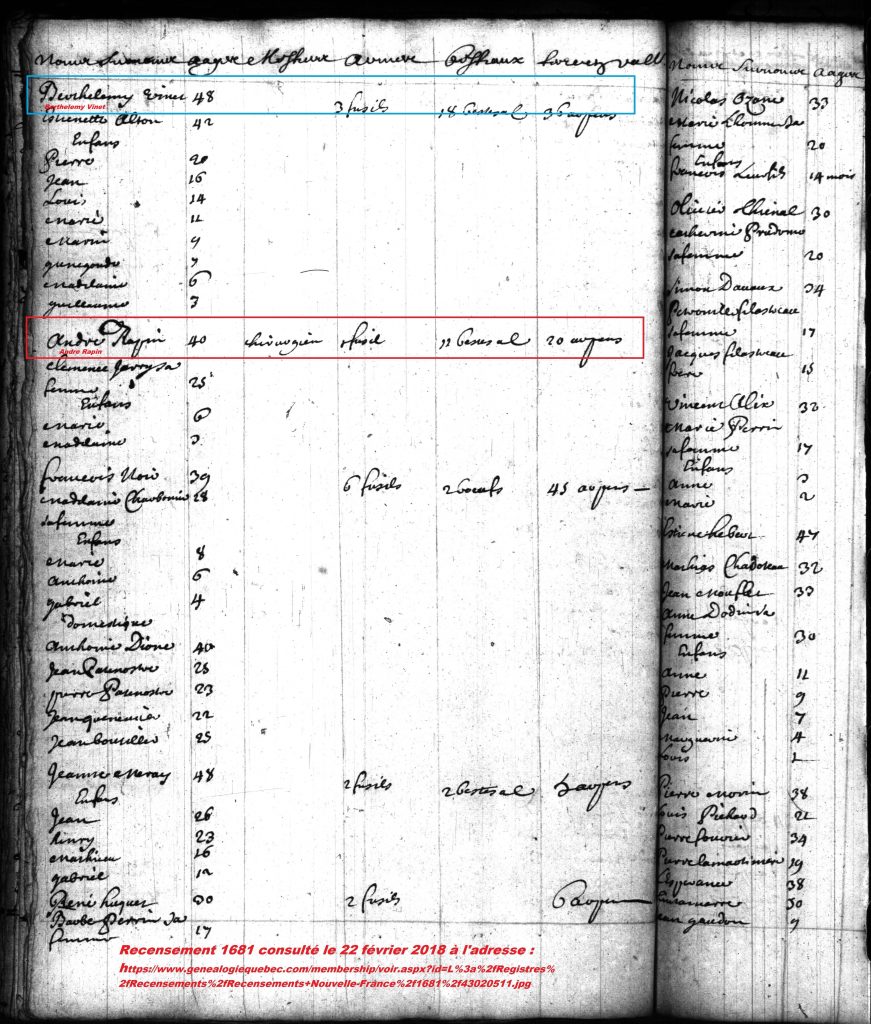 Noms Surnoms aages Mestiers Armes Bestiaux terres vall
Berthelemy Vinet 48 3 fusils 18 bestes al 36 arpens
Barthelemy Vinet
Estiennette Alton 42
Enfans
Pierre 20
Jean 16
Louis 14
Marie 11
Marin 9
gunegonde 7
Madelaine 6
guillaume 3
André Rapin 40 chirurgien 1 fusil 11 bestes al 20 arpens
Andre Rapin
Clemence Jarry sa
femme 25
Enfans
Marie 6
Madelaine 3
francois Noir 39 6 fusils 2 boeufs 45 arpens
Madelaine Charbonnie 28
sa femme
Enfans
Marie 8
Anthoine 6
gabriel 4
Domestique
Anthoine Dione 40
Jean Patenostre 28
pierre Patenostre 23
Jean 22
Jean bousiller 25
Jeanne Meray 48 2 fusils 2 bestes al 5 arpens
Enfans
Jean 26
henry 23
Mathieu 16
gabriel 12
René huguet 30 2 fusils 6 arpens
Barbe Perrin sa
femme 17
Noms Surnoms aages
Nicolas Ozanne 33
Marie Lhomme sa
femme 20
Enfans
francois Leur fils 14 mois
Olivier 30
Catherine Prudome
sa femme 20
Simon Davaux 34
Peronelle filastreau
sa femme 17
Jacques filastreau
frere 15
Vincent Alix 32
Marie Perrin
sa femme 17
Enfans
Anne 3
Marie 2
Estienne hebert 47
Mathias Chadoteau 32
Jean Mouflet 33
Anne Dodin sa
femme 30
Enfans
Anne 11
Pierre 9
Jean 7
Marguerite 4
Louis 1
Pierre Morin 38
Louis Pichard 22
Pierre fouvrier 34
Pierre 19
Lesperance 38
30
Jean gaudon 9
Recensement 1681 consulté le 22 février 2018 à l'adresse :
https://www.genealogiequebec.com/membership/voir.aspx?id=L%3a%2fRegistres%
2fRecensements%2fRecensements+Nouvelle-France%2f1681%2f43020511.jpg